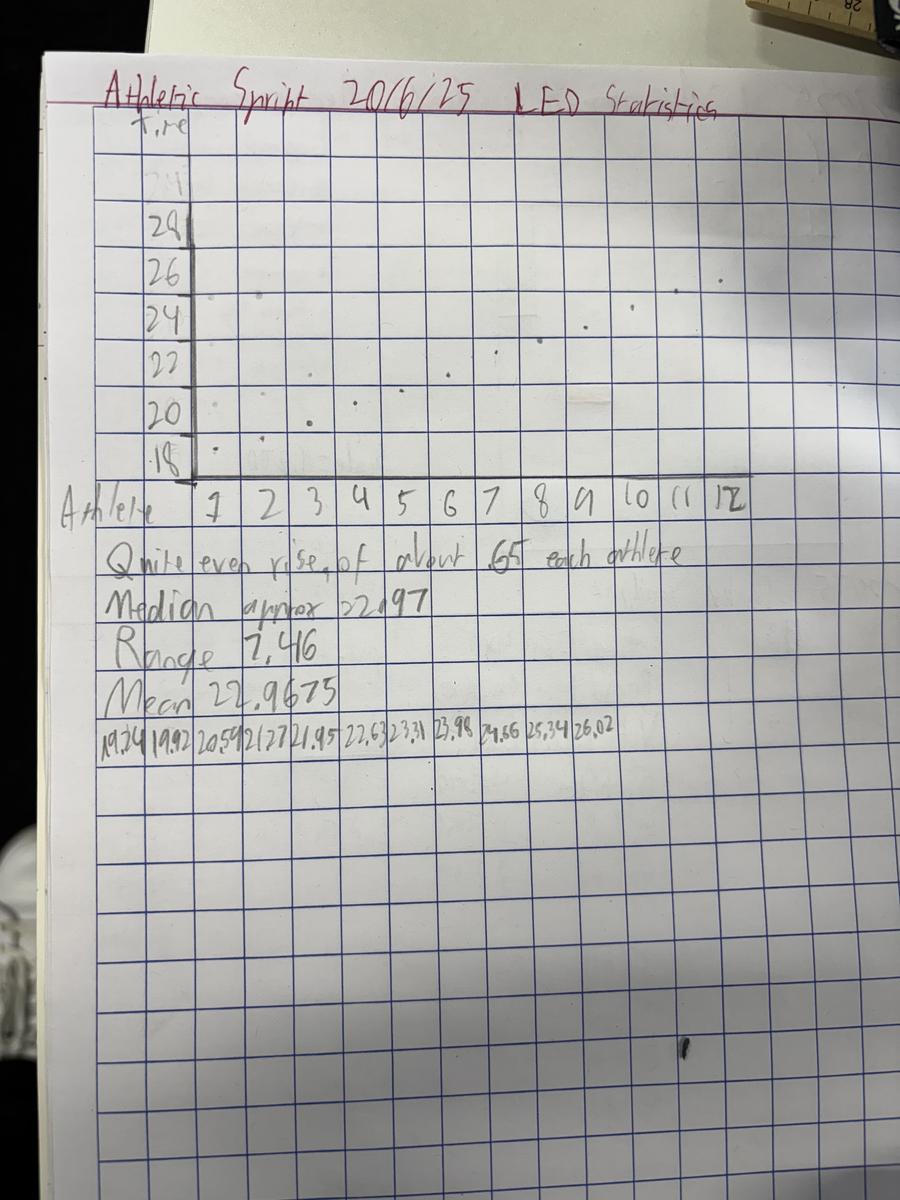 Athletic Sprint 20/6/25 LED Statistics
Time
24
28
26
24
22
20
18
Athlete 1 2 3 4 5 6 7 8 9 10 11 12
Quite even rise, of about .65 each athlete
Median approx 22.97
Range 7.46
Mean 22.9675
19.24 19.92 20.59 21.27 21.95 22.63 23.31 23.98 24.66 25.34 26.02
28